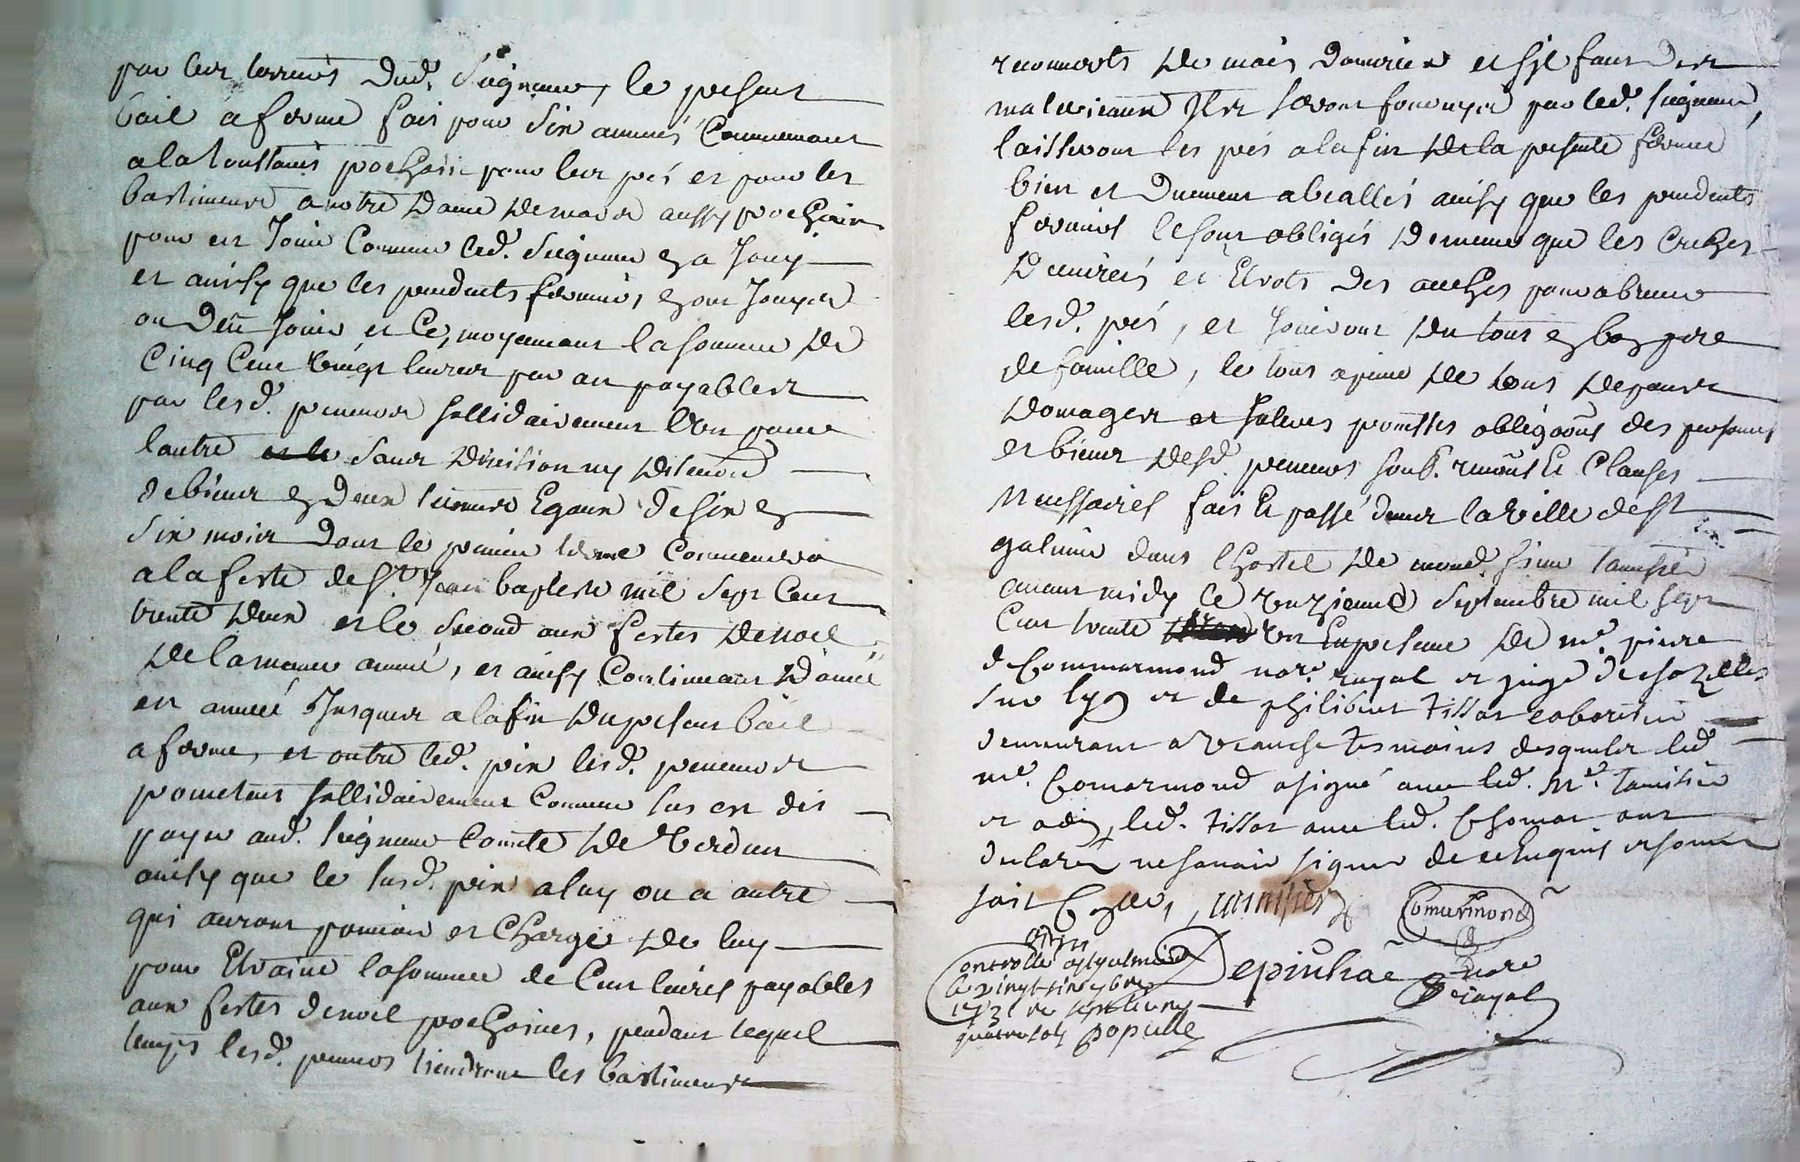 par les terriers dud. Seigneur, le present
bail a ferme fais pour six années Commencant
a la toussains prochain pour les prés et pour les
bastiments a nostre dame de mars aussy prochain
pour en Jouir Comme led. Seigneur en a Jouy
et ainsy que les precedents fermiers en ont Jouyes
ou deu Jouir et Ce, moyennant la somme de
Cinq Cent vingt livres par an payables
par lesd. preneurs sollidairement l'un pour
l'autre sans division ny
de biens en deux termes Egaux de six en
six mois dont le premier terme Commencera
a la feste de St. Jean baptiste mil sept Cent
trente deux et le second aux festes de noel
de la mesme année, et ainsy Continuant d'année
en année Jusques a la fin du present bail
a ferme, et outre led. prix lesd. preneurs
prometent sollidairement Comme sus est dit
payer aud. Seigneur Comte de Verdun
ainsy que le susd. prix a luy ou a autre
qui auront pouvoir et Charge de luy
pour Etraine la somme de Cent livres payables
aux festes de noel prochaines, pendant lequel
temps lesd. preneurs tiendront les bastiments
recouverts de main d'ouvrier et s'il faut des
materiaux Ils seront fournys par led. Seigneur,
laisseront les prés a la fin de la presente ferme
bien et duement abeallés ainsy que les precedents
fermiers le sont obligés de meme que les
et des pour abreuver
lesd. prés, et Jouiront du tout en bon pere
de famille, le tout a peine de tous depans
domages et promesses obligaons des personnes
et biens desd. preneurs soub. renons Et Clauses
necessaires fait Et passé dans la ville de St
galmier dans l'hostel de mond. sieur tamisier
avant midy Ce onzieme Septembre mil sept
Cent trente un En presence de me. pierre
de Commarmond nore. royal et juge de chazelles
sur lyon et de philibert tissot
demeurant a tesmoins desquels led.
me. Comarmond a signé avec led. Me. tamisier
et non led. tissot avec led. thomas ont
declaré ne savoir signer de ce Enquis et sommés
tamisier Comarmond
Controllé a St galmier
le vingt six 7bre
1731 re sept livres
quatre sols popülle
Depiuhac nore
royal